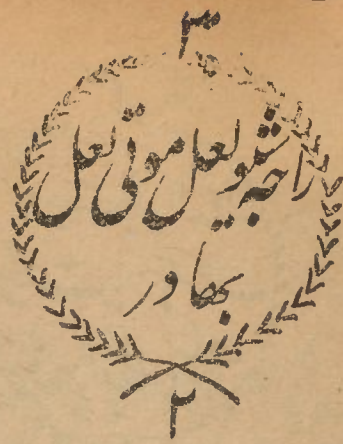 ۳
راجہ شیو لعل موتی لعل
بہادر
۲